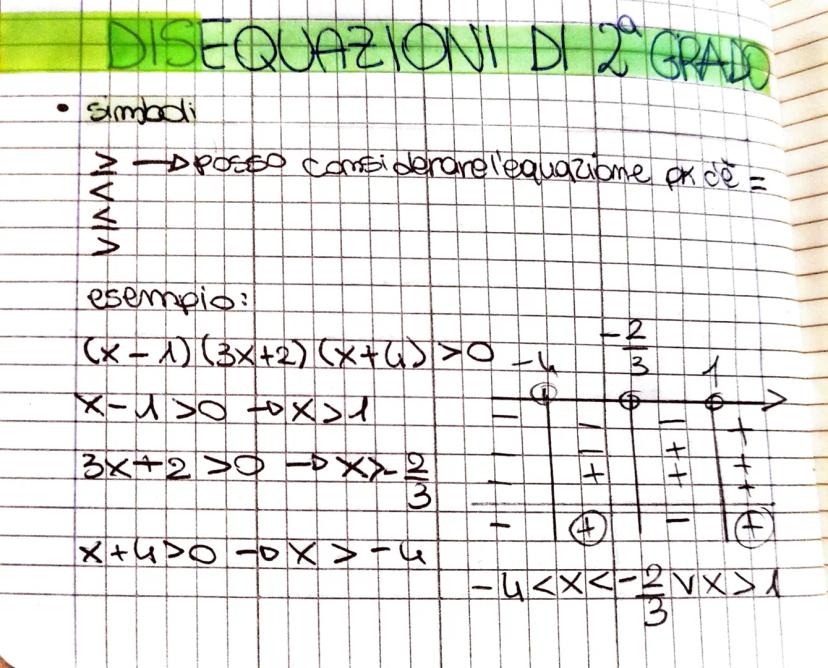 DISEQUAZIONI DI 2ª GRADO
• simboli
≥ → posso considerare l'equazione pk c'è =
<
≤
>
esempio:
(x - 1)(3x+2)(x+4) > 0
x - 1 > 0 → x > 1
3x + 2 > 0 → x > - 2/3
x + 4 > 0 → x > - 4
-4 -2/3 1
- - - +
- - + +
- + + +
- + - +
-4 < x < -2/3 v x > 1